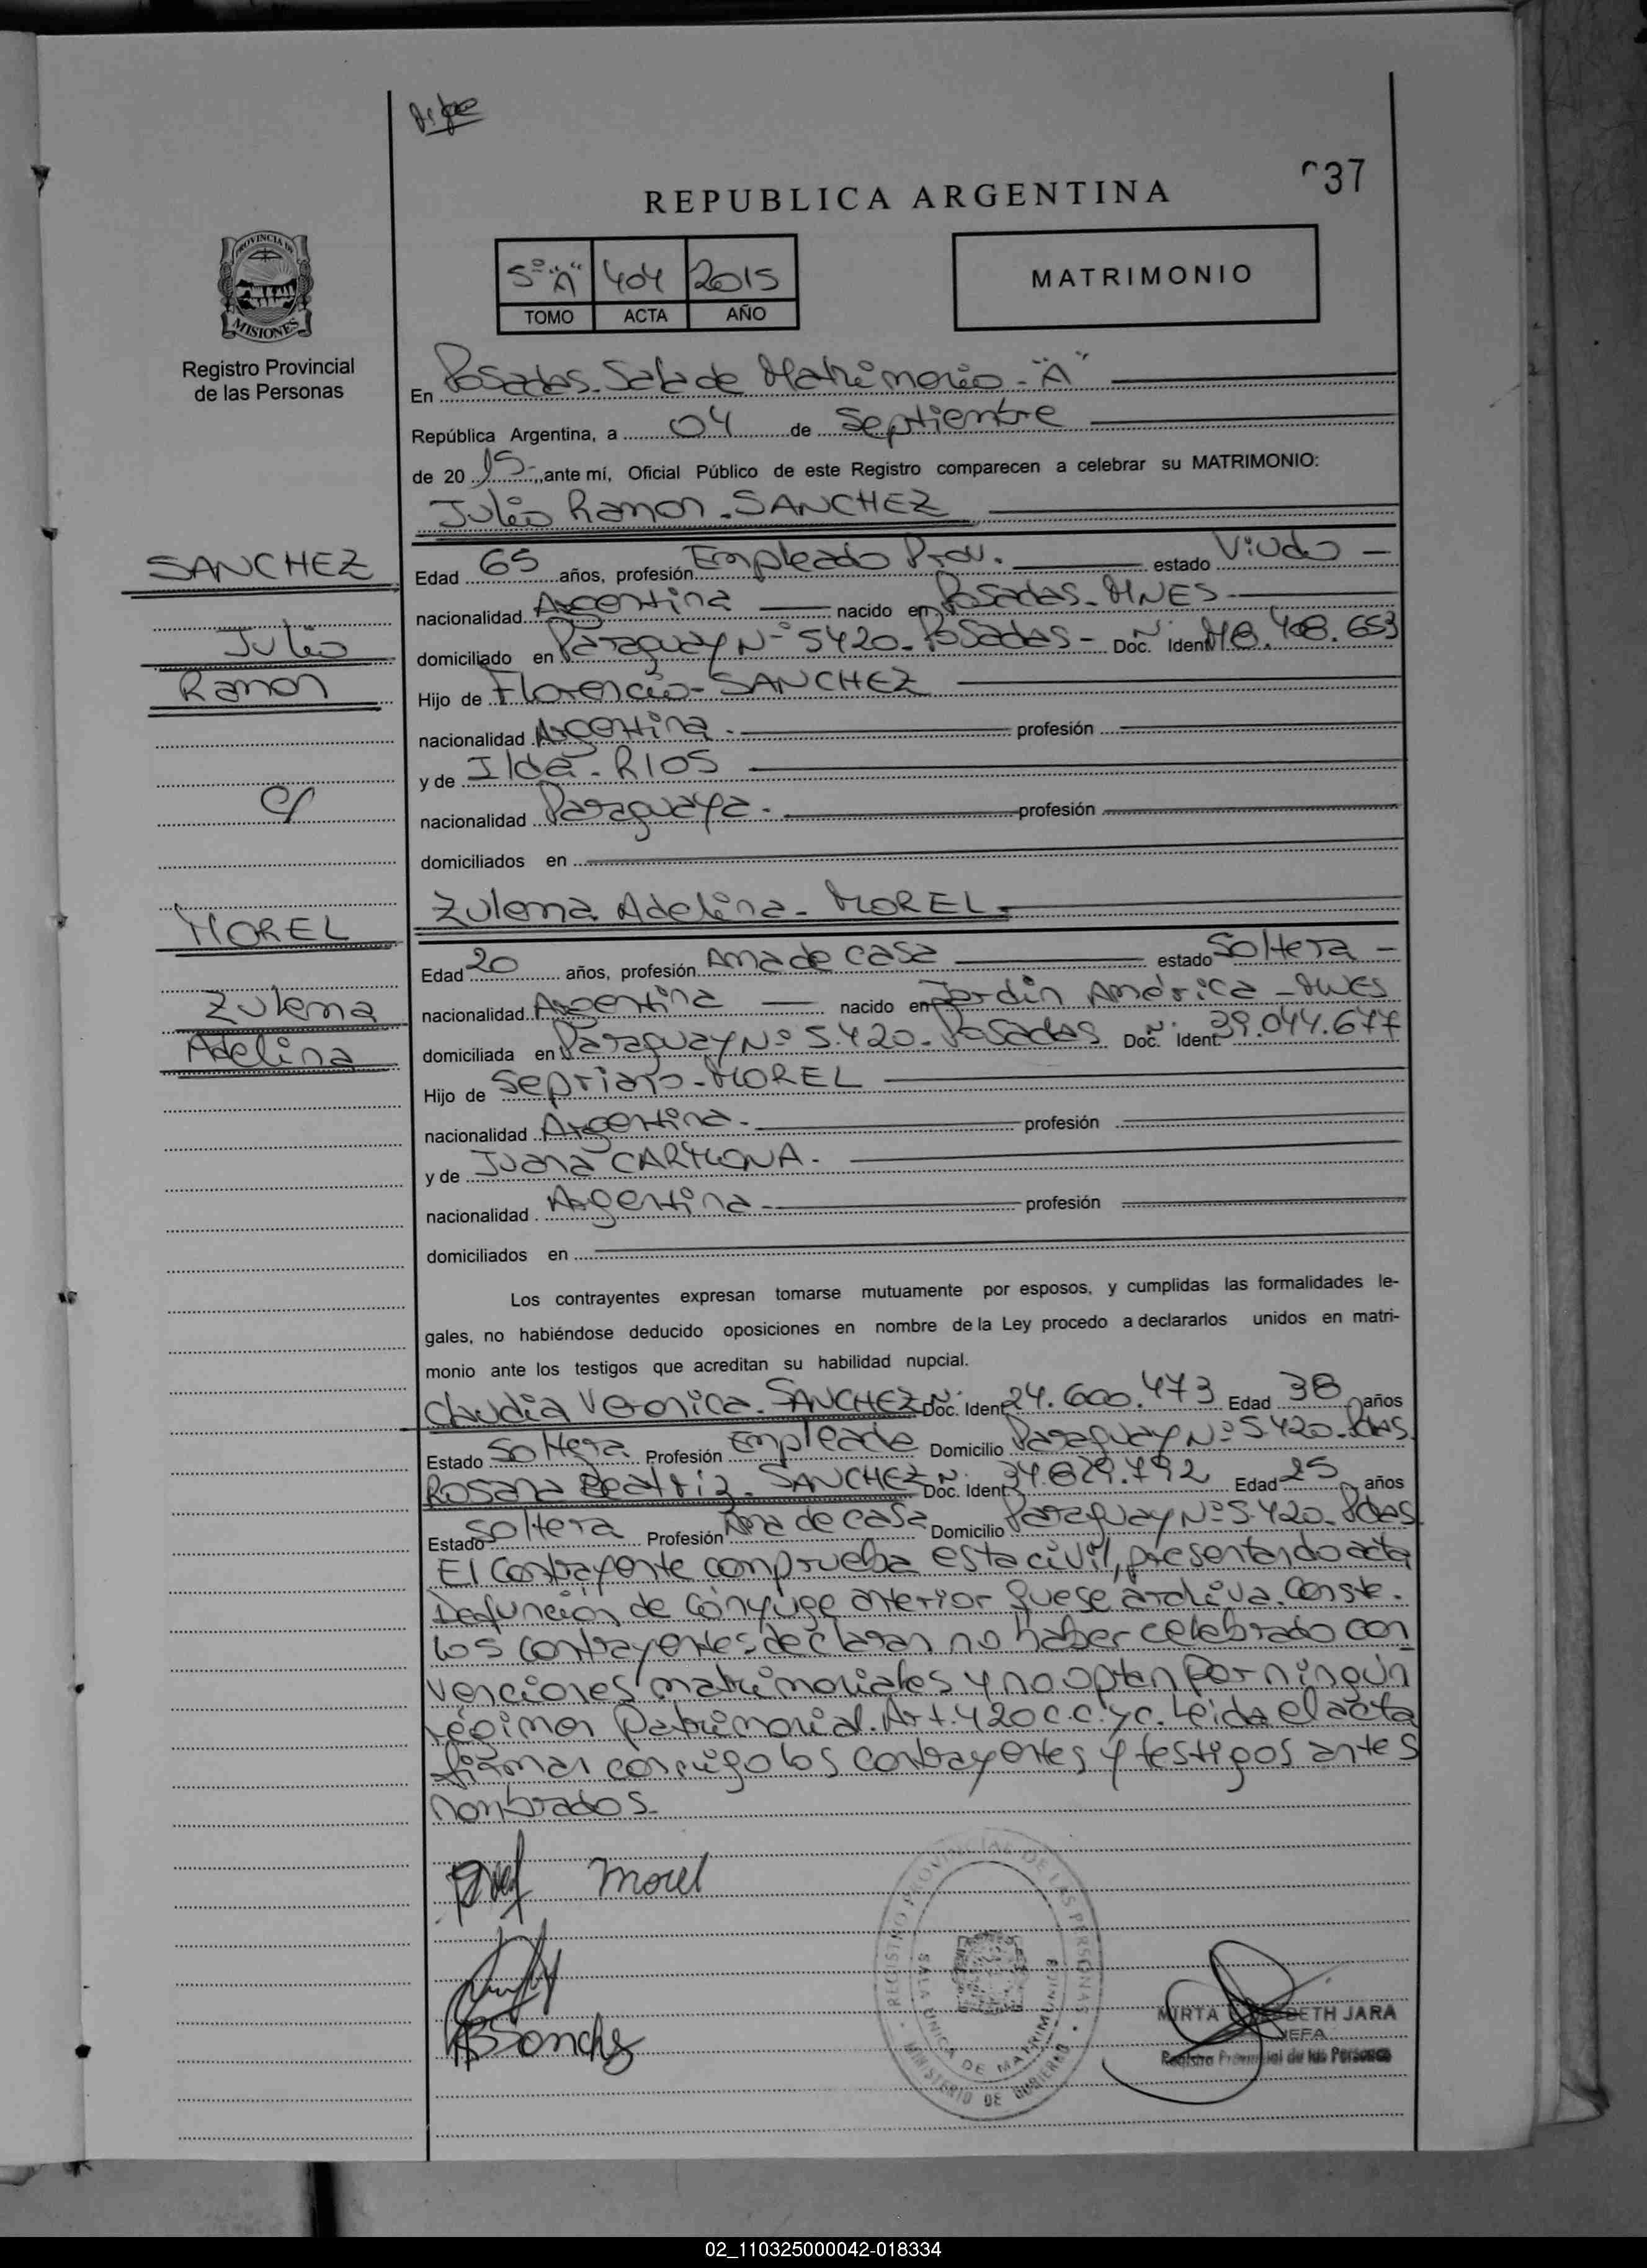 037
REPUBLICA ARGENTINA
5º "A" 404 2015
TOMO ACTA AÑO
MATRIMONIO
PROVINCIA DE
MISIONES
Registro Provincial
de las Personas
En Posadas. Sala de Matrimonio - "A"
República Argentina, a 04 de Septiembre
de 20 15 ,ante mí, Oficial Público de este Registro comparecen a celebrar su MATRIMONIO:
Julio Ramon. SANCHEZ
SANCHEZ
Julio
Ramon
Edad 65 años, profesión Empleado Prov. estado Viudo -
nacionalidad Argentina nacido en Posadas. MNES
domiciliado en Paraguay Nº 5420. Posadas - Doc. Ident Nº M8.408.653
Hijo de Florencio - SANCHEZ
nacionalidad Argentina. profesión
y de Ilda - RIOS
nacionalidad Paraguaya. profesión
domiciliados en
c/
MOREL
Zulema
Adelina
Zulema Adelina - MOREL
Edad 20 años, profesión Ama de casa estado Soltera -
nacionalidad Argentina nacido en Jardin América - MNES
domiciliada en Paraguay Nº 5.420. Posadas Doc. Ident Nº 39.044.677
Hijo de Sepriano - MOREL
nacionalidad Argentina. profesión
y de Juana CARMONA.
nacionalidad Argentina profesión
domiciliados en
Los contrayentes expresan tomarse mutuamente por esposos, y cumplidas las formalidades le-
gales, no habiéndose deducido oposiciones en nombre de la Ley procedo a declararlos unidos en matri-
monio ante los testigos que acreditan su habilidad nupcial.
Claudia Veronica. SANCHEZ Doc. Ident Nº 24.600.473 Edad 38 años
Estado Soltera Profesión Empleada Domicilio Paraguay Nº 5.420. Pdas.
Rosana Beatriz. SANCHEZ Doc. Ident Nº 34.829.792 Edad 25 años
Estado Soltera Profesión Ama de casa Domicilio Paraguay Nº 5.420. Pdas
El contrayente comprueba esta civil, presentando acta
Defunción de cónyuge anterior que se archiva. Conste.
Los contrayentes declaran no haber celebrado con
venciones matrimoniales y no optan por ningún
régimen Patrimonial. Art. 420 C.C. y C. Leida el acta
firman conmigo los contrayentes y testigos antes
nombrados
Morel
RBSanchez
REGISTRO PROVINCIAL DE LAS PERSONAS
SALA UNICA DE MATRIMONIOS
MINISTERIO DE GOBIERNO
MIRTA JARA
JEFA
Registro Provincial de las Personas
02_110325000042-018334